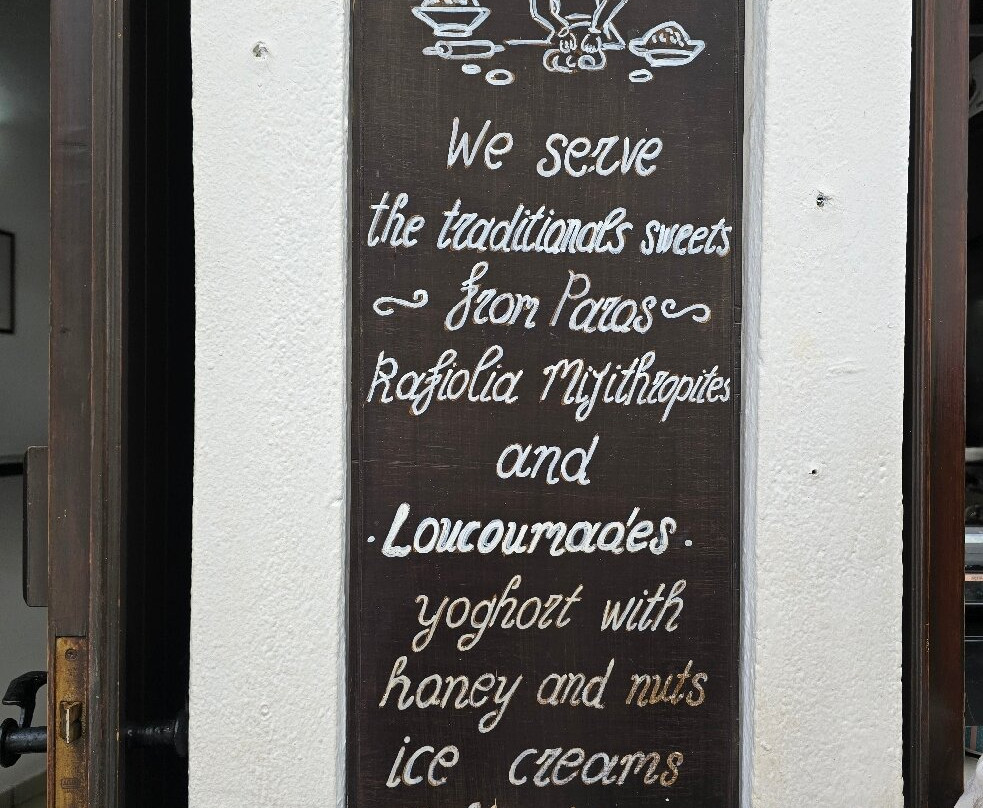 We serve
the traditionals sweets
from Paros
Rafiolia Mijithropites
and
·Loucoumades·
yoghort with
honey and nuts
ice creams